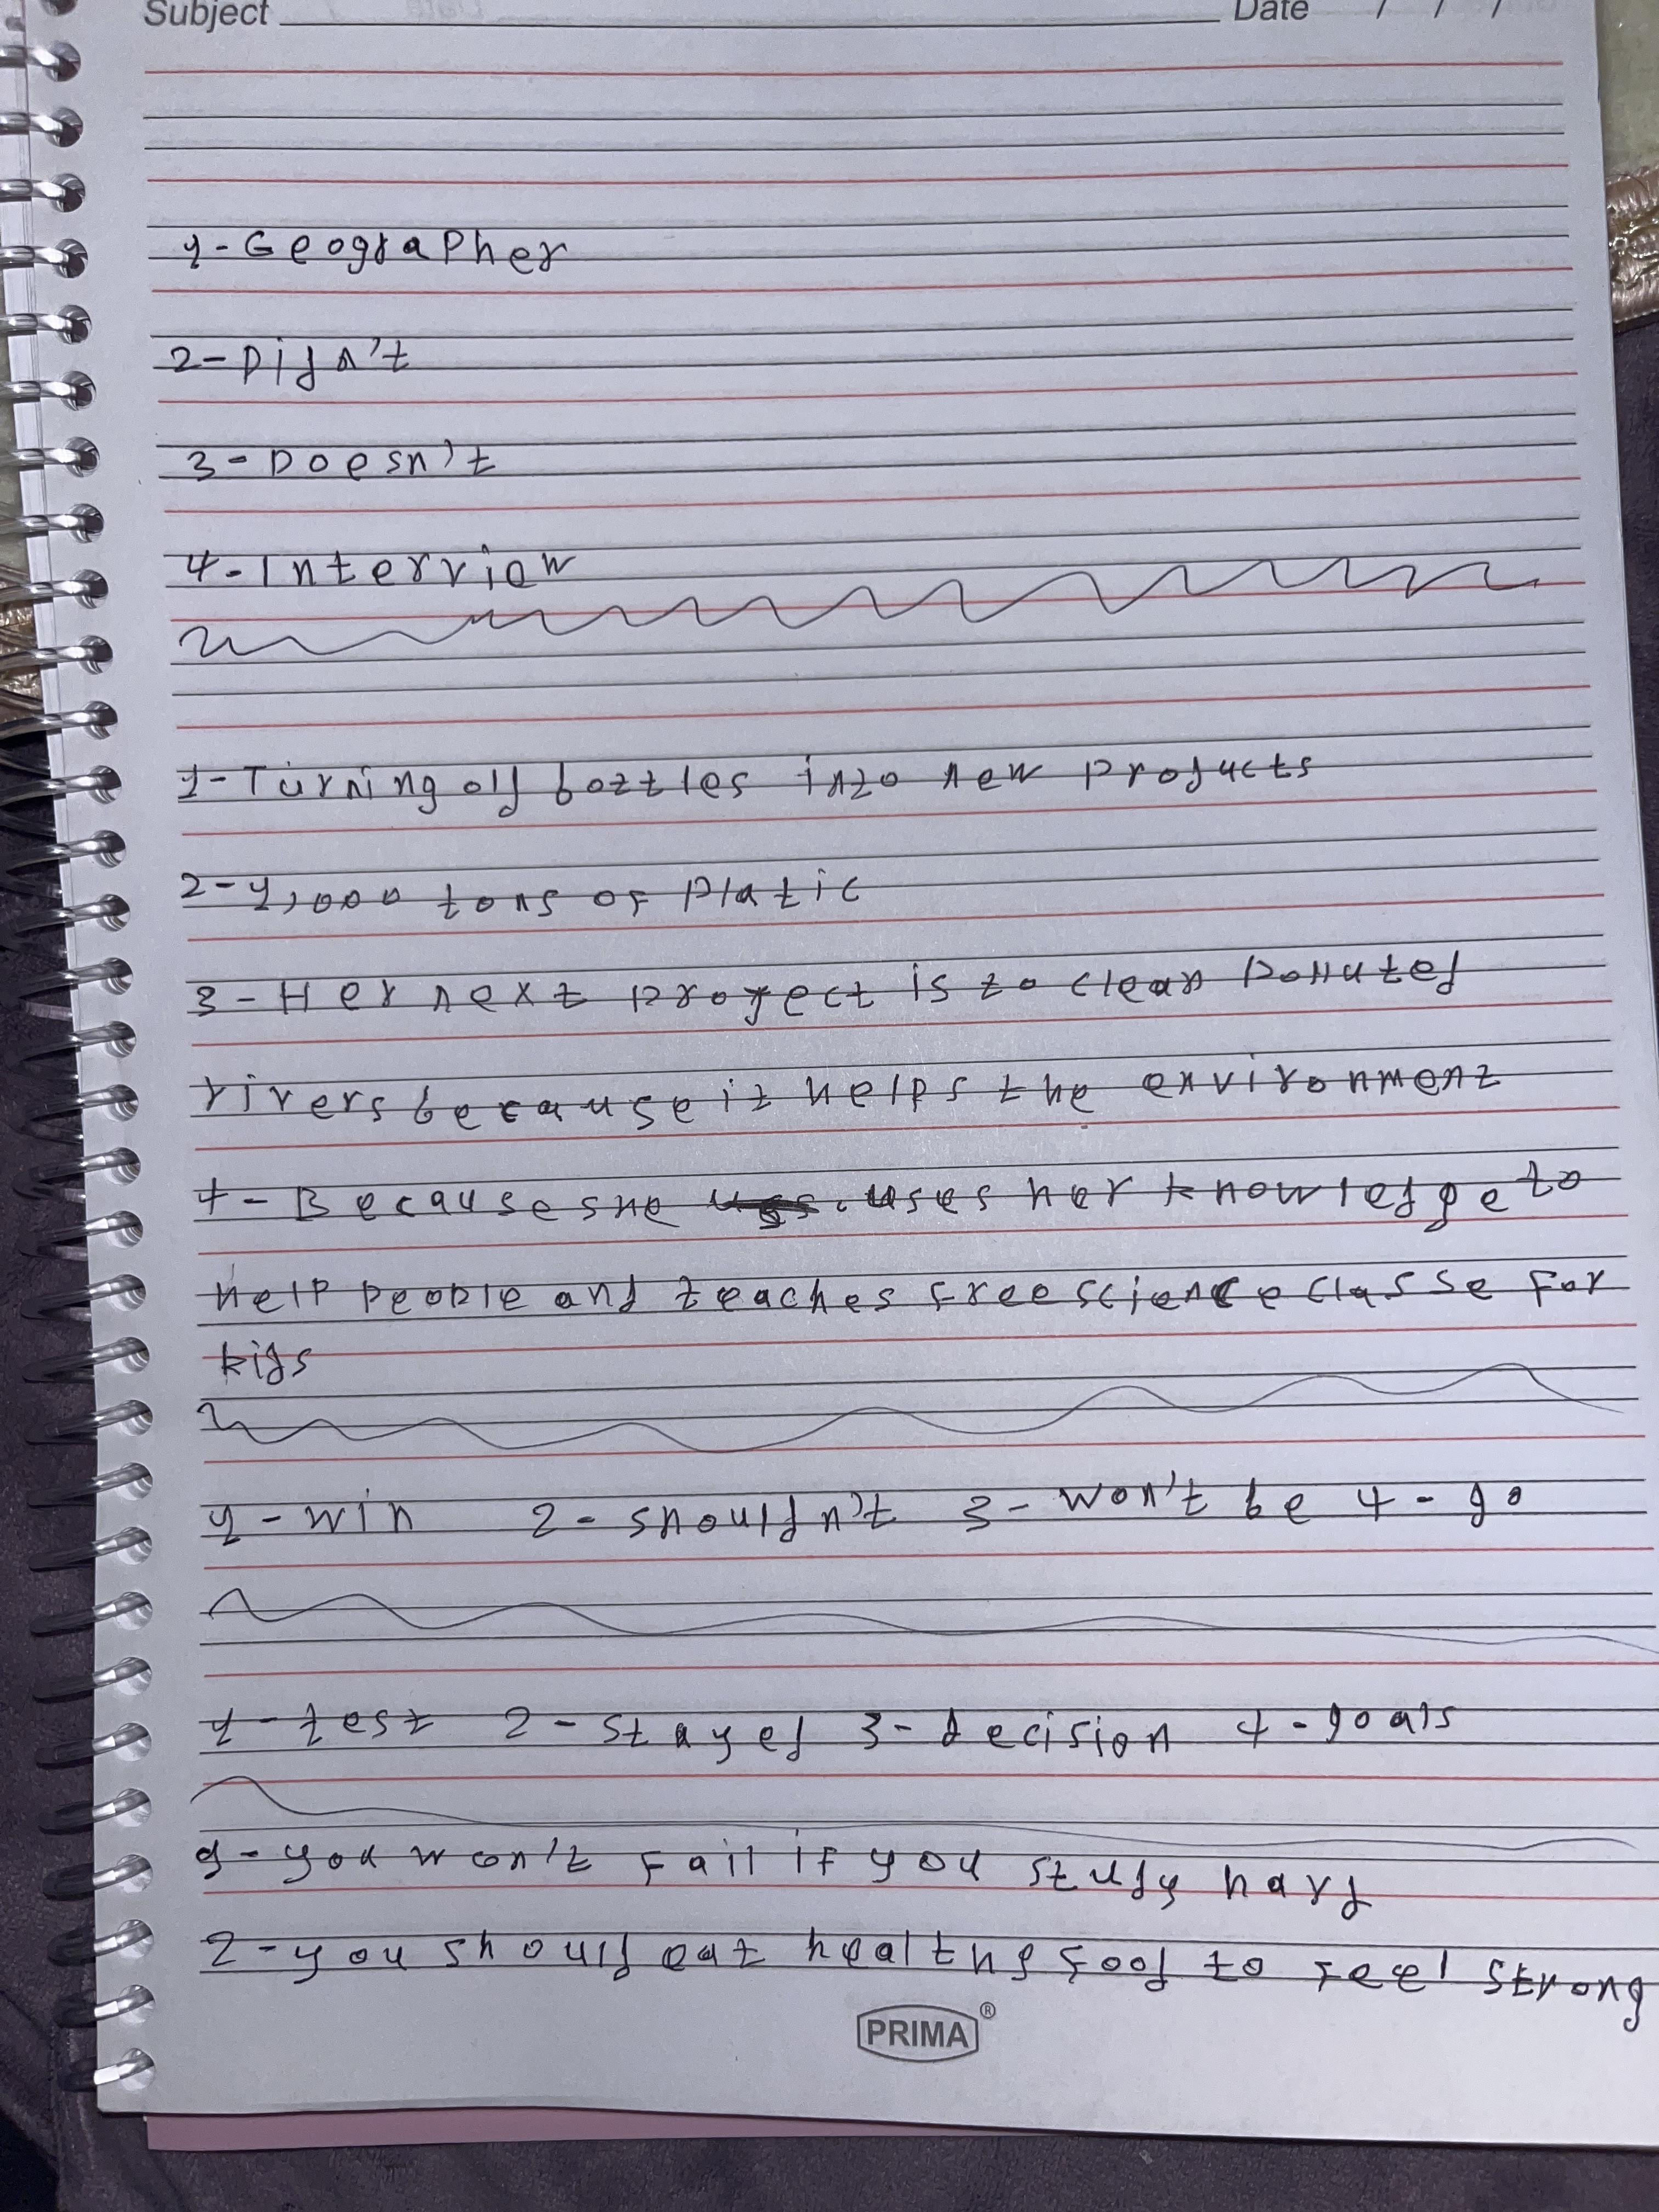 Subject Date / / /
1-Geographer
2-Didn't
3-Doesn't
4-Interview
1-Turning old bottles into new products
2-1,000 tons of platic
3-Her next project is to clean polluted
rivers because it helps the environment
4-Because she uses her knowledge to
help people and teaches free science classe for
kids
1-win 2-shouldn't 3-won't be 4-go
1-test 2-stayed 3-decision 4-goals
1-you won't fail if you study hard
2-you should eat healthy food to feel strong
PRIMA®